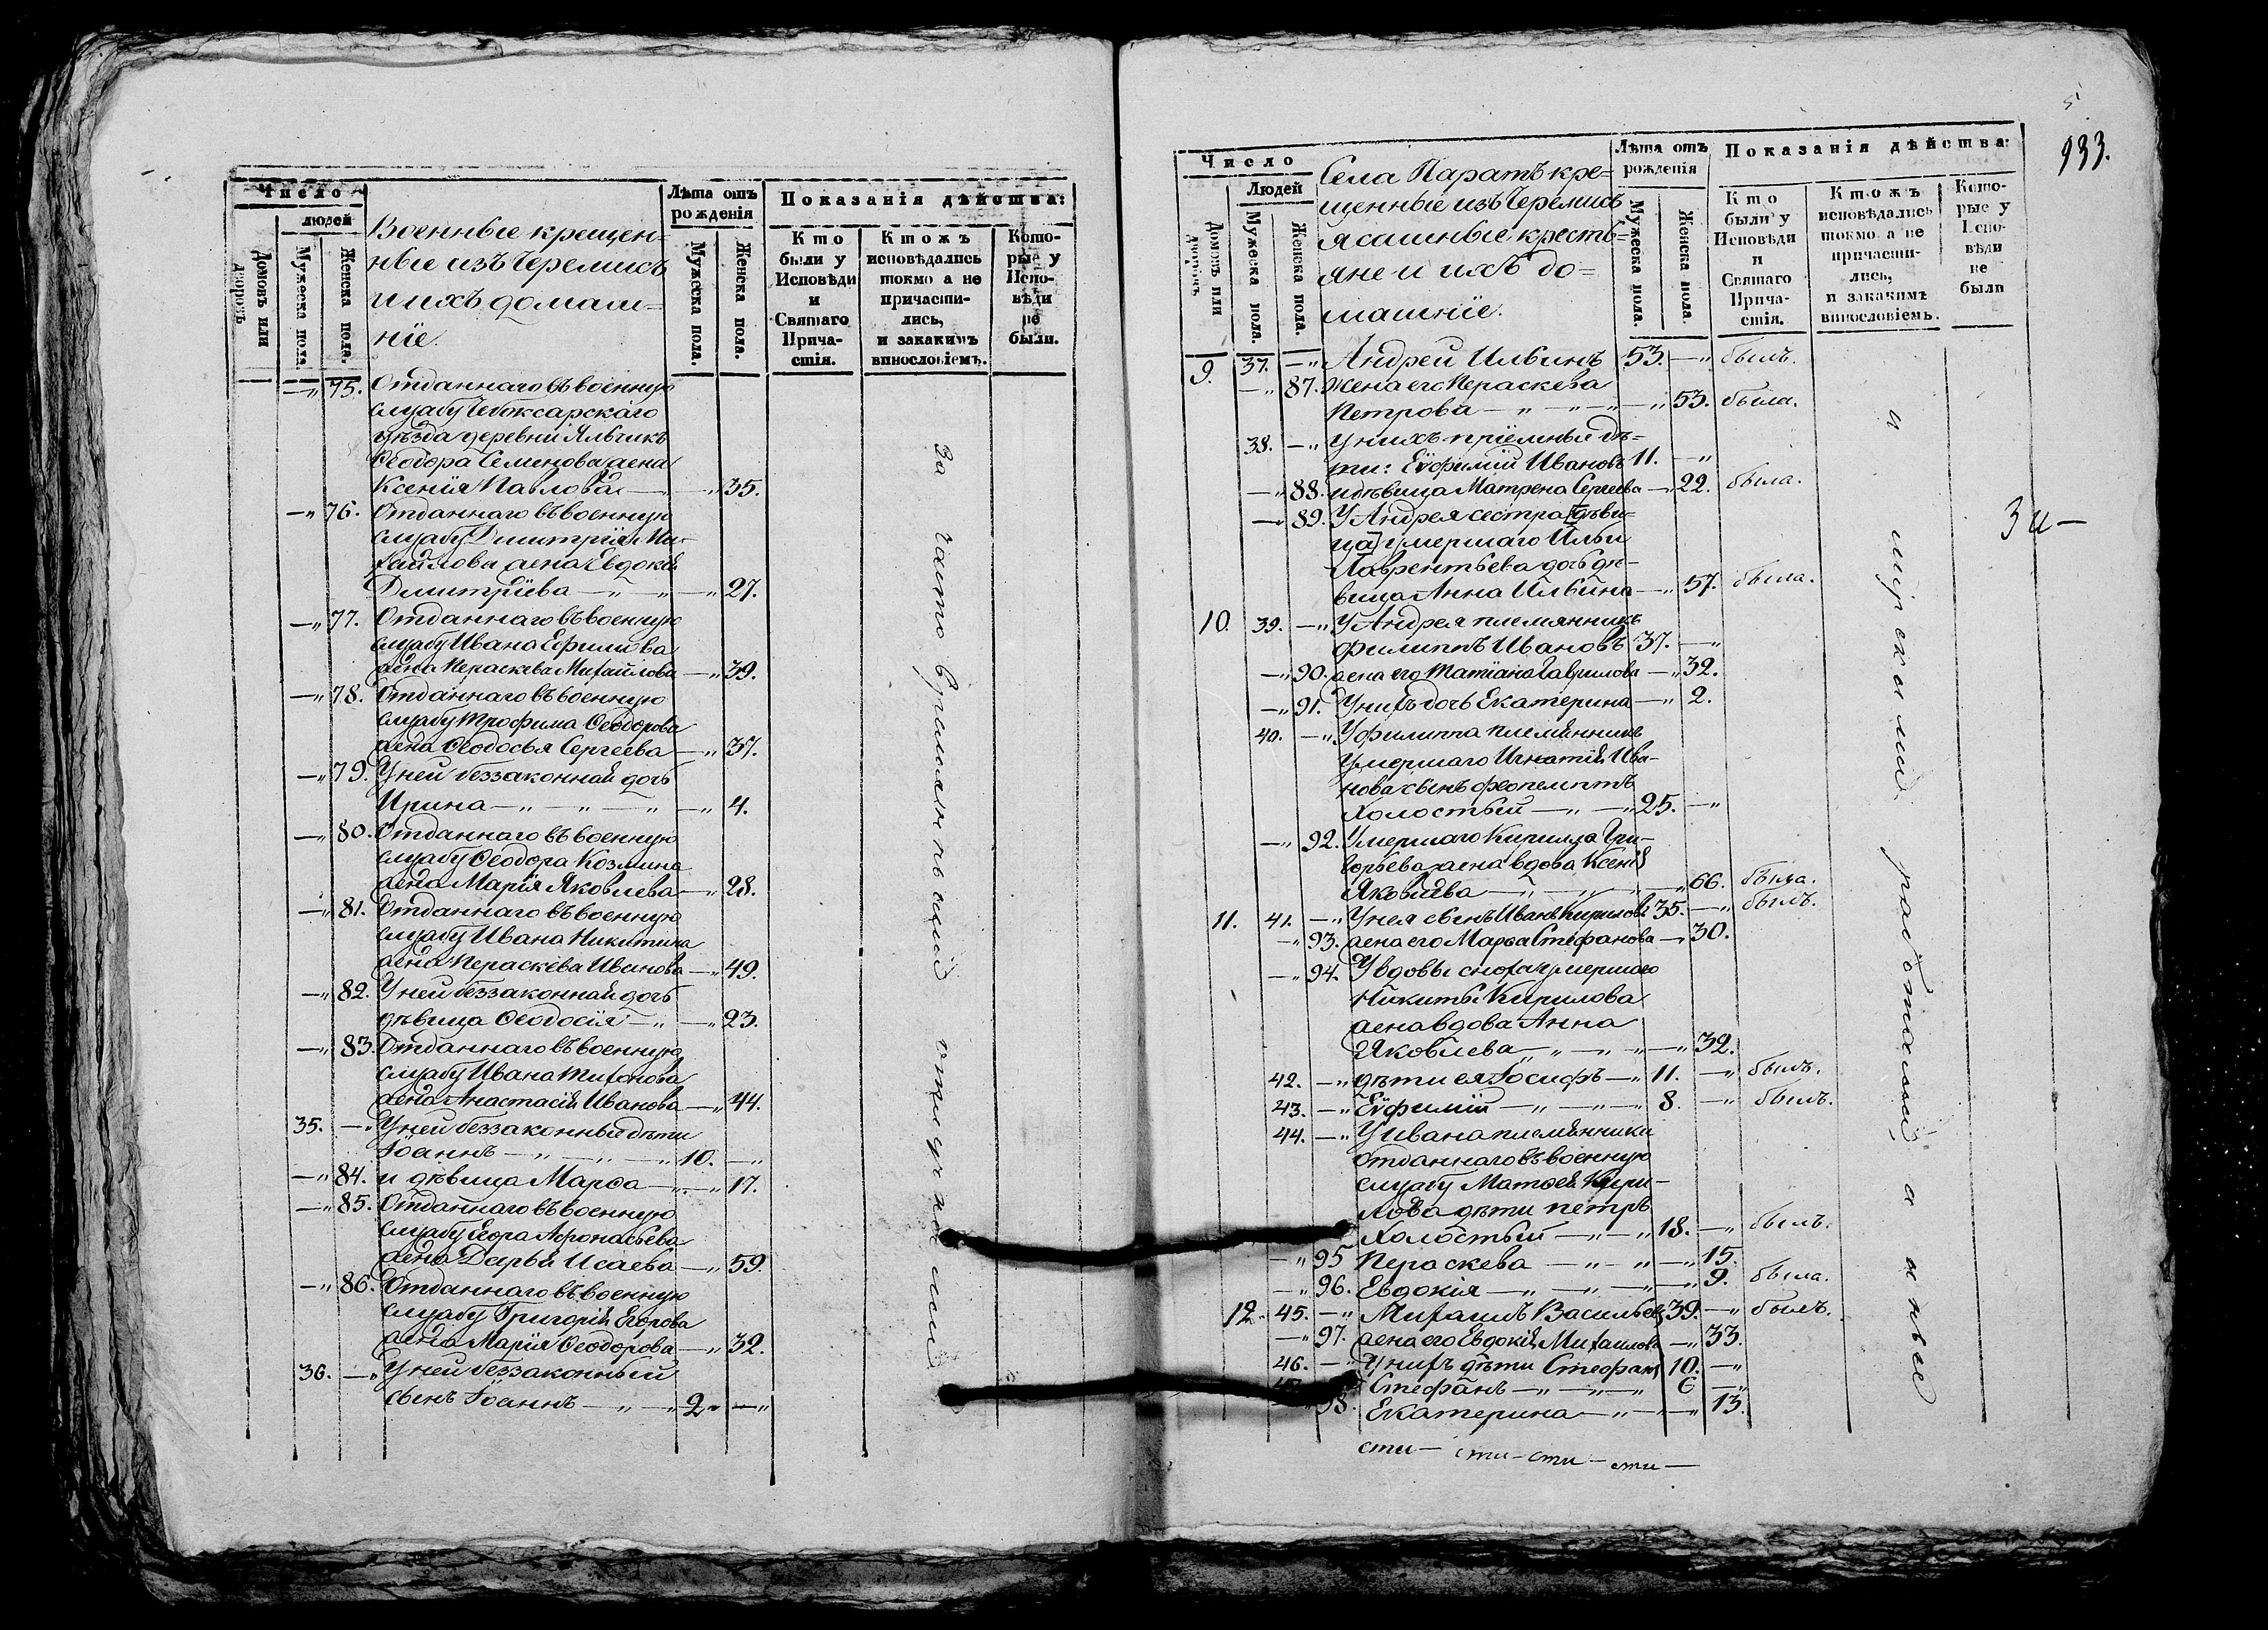 Число
людей
Домовъ или дворовъ
Мужеска пола.
Женска пола.
Военные крещен=
ные изъ Черемисъ
и ихъ домаш=
ніе.
Лѣта отъ рожденія
Мужеска пола.
Женска пола.
Показанія дѣйства:
Кто были у Исповѣди и Святаго Прича-стія.
Ктожъ исповѣдались токмо а не причасти-лись, и закакимъ винословіемъ.
Кото-рые у Испо-вѣди не были.
—„ 75. Отданнаго въ военную
службу Чебоксарскаго
уѣзда деревни Яльчикъ
Ѳеодора Семенова жена
Ксенія Павлова —„ 35.
—„ 76. Отданнаго въ военную
службу Димитрія Ми-
хайлова жена Евдокія
Димитріева —„— „ —„ 27.
—„ 77. Отданнаго въ военную
службу Ивана Ефимова
жена Пераскева Михайлова —„ 39.
—„ 78. Отданнаго въ военную
службу Трофима Ѳеодорова
жена Ѳеодосья Сергеева —„ 37.
—„ 79. У ней беззаконная дочь
Ирина —„— „ —„ —„ 4.
—„ 80. Отданнаго въ военную
службу Ѳеодора Козмина
жена Марія Яковлева —„ 28.
—„ 81. Отданнаго въ военную
службу Ивана Никитина
жена Пераскева Иванова —„ 49.
—„ 82. У ней беззаконная дочь
дѣвица Ѳеодосія —„ —„ 23.
—„ 83. Отданнаго въ военную
службу Ивана Тихонова
жена Анастасія Иванова —„ 44.
35. —„ У ней беззаконные дѣти
Іоаннъ —„ —„ —„ 10. —„
—„ 84. и дѣвица Марѳа —„ —„ 17.
—„ 85. Отданнаго въ военную
службу Егора Афонасьева
жена Дарья Исаева —„ 59.
—„ 86. Отданнаго въ военную
службу Григорія Егорова
жена Марія Ѳеодорова —„ 32.
36. —„ У ней беззаконный
сынъ Іоаннъ —„ —„ 2. —„
за часто временными отлучками
933.
Число
Людей
Домовъ или дворовъ
Мужеска пола.
Женска пола.
Села Паратъ кре=
щенные изъ Черемисъ
ясашные кресть=
яне и ихъ до=
машніе.
Лѣта отъ рожденія
Мужеска пола.
Женска пола.
Показанія дѣйства:
Кто были у Исповѣди и Святаго Прича-стія.
Ктожъ исповѣдались токмо а не причасти-лись, и закакимъ винословіемъ.
Кото-рые у Испо-вѣди не были
9. 37. —„ Андрей Ильинъ 53. —„ былъ.
—„ 87. жена его Пераскева
Петрова —„ —„ —„ 53. была.
38. —„ У нихъ пріемные дѣ=
ти: Еѵфимій Ивановъ 11. —„
—„ 88. и дѣвица Матрена Сергеева —„ 22. была.
—„ 89. У Андрея сестра [дѣви=
ца] умершаго Ильи
Лаврентьева дочь дѣ-
вица Анна Ильина —„ 57. была.
10. 39. —„ У Андрея племянникъ
Филиппъ Ивановъ 37. —„
—„ 90. жена его Татіана Гаврилова —„ 32.
—„ 91. У нихъ дочь Екатерина —„ 2.
40. —„ У Филиппа племянникъ
умершаго Игнатія Ива-
нова сынъ Феопемптъ
холостый —„ —„ 25. —„
—„ 92. Умершаго Кирилла Гри-
горьева жена вдова Ксенія
Яковлева —„ —„ —„ 66. была.
11. 41. —„ У нея сынъ Иванъ Кириловъ 35. —„ былъ.
—„ 93. жена его Марѳа Стефанова —„ 30.
—„ 94. У вдовы сноха умершаго
Никиты Кирилова
жена вдова Анна
Яковлева —„ —„ —„ 32.
42. —„ дѣти ея Іосифъ —„ 11. —„ былъ.
43. —„ Еѵфимій —„ —„ 8. —„ былъ.
44. —„ У Ивана племянники
отданнаго въ военную
службу Матѳея Кири-
лова дѣти Петръ
холостый —„ —„ 18. —„ былъ.
—„ 95 Пераскева —„ —„ —„ 15.
—„ 96. Евдокія —„ —„ —„ 9. была.
12. 45. —„ Михаилъ Васильевъ 39. —„ былъ.
—„ 97. жена его Евдокія Михаилова —„ 33.
46. —„ У нихъ дѣти Стефанъ 10. —„
Стефанъ —„ —„ 6 —„
98. Екатерина —„ —„ 13.
сти — сти — сти — сти —
и мірскими работами, а